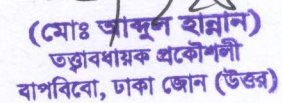 (মোঃ আব্দুল হান্নান)
তত্ত্বাবধায়ক প্রকৌশলী
বাপবিবো, ঢাকা জোন (উত্তর)